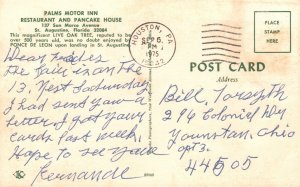 PALMS MOTOR INN
RESTAURANT AND PANCAKE HOUSE
137 San Marco Avenue
St. Augustine, Florida 32084
This magnificent LIVE OAK TREE, reputed to be
over 500 years old, was no doubt enjoyed by
PONCE DE LEON upon landing in St. Augustine.
HOUSTON,
SEP 6
PM
1975
POST CARD
Address
Dear
The fair is on The
13, next Saturday
I had sent you a
letter I got your
cards last week.
Hope to see you
Fernande
Bill Forsyth
296 Colonial Dry
Younstan, Ohio
opt 3.
44505